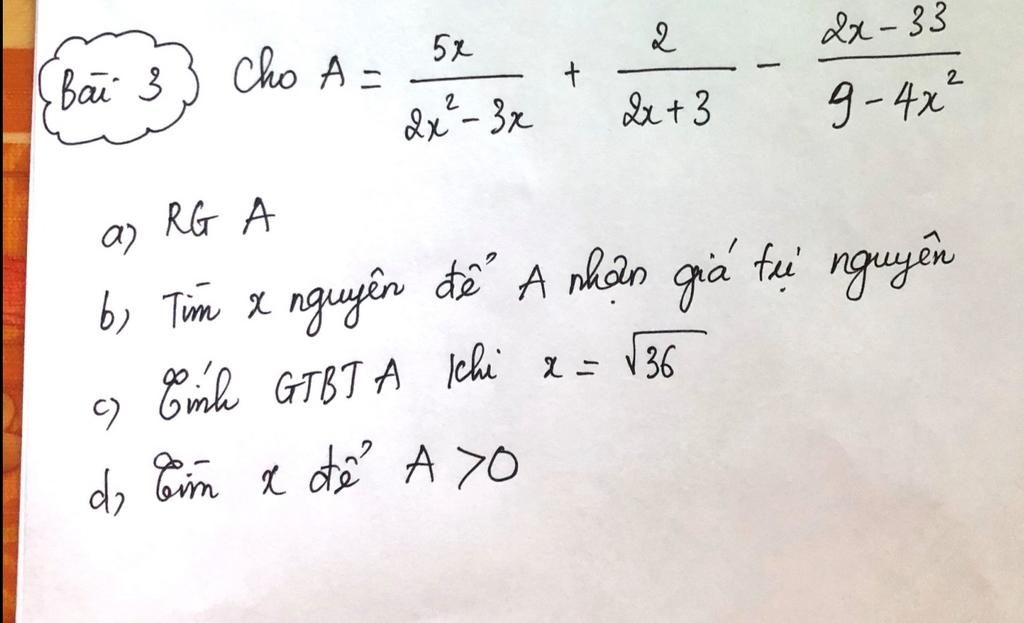 Bài 3 Cho A = \frac{5x}{2x^2 - 3x} + \frac{2}{2x+3} - \frac{2x-33}{9-4x^2}
a) RG A
b) Tìm x nguyên để A nhận giá trị nguyên
c) Tính GTBT A khi x = \sqrt{36}
d) Tìm x để A >0